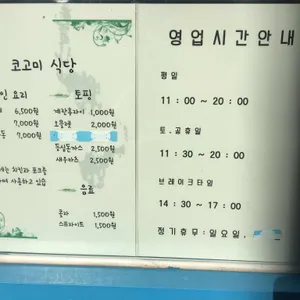 코고미 식당
인 요리
6,500원
7,000원
동 7,000원
토핑
계란후라이 1,000원
오믈렛 2,000원
등심돈가스 2,500원
새우까스 2,500원
음료
콜라 1,500원
스프라이트 1,500원
영업시간안내
평일
11 : 00 ~ 20 : 00
토.공휴일
11 : 30 ~ 20 : 00
브레이크타임
14 : 30 ~ 17 : 00
정기휴무 : 일요일.